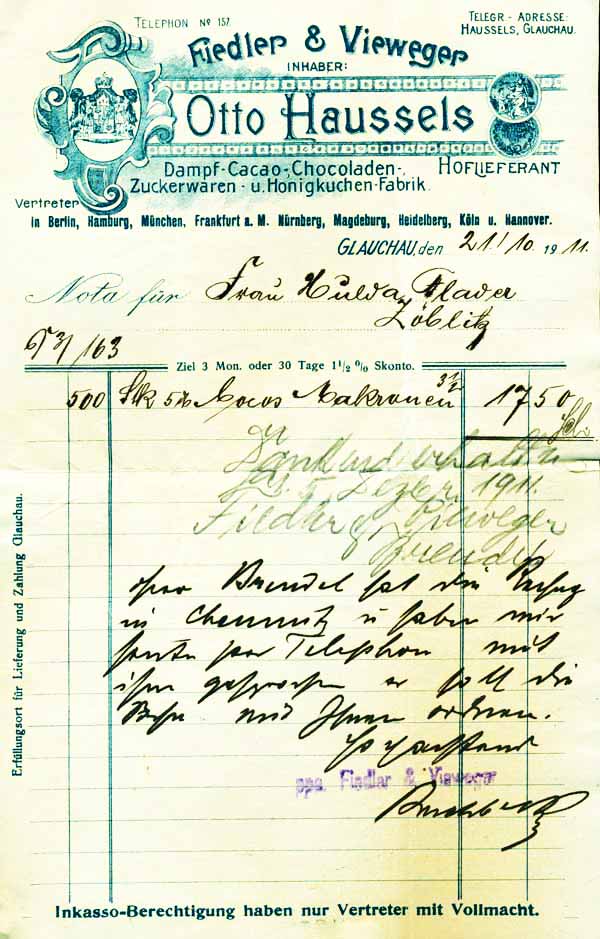 TELEPHON No 157.
TELEGR.-ADRESSE:
HAUSSELS, GLAUCHAU.
Fiedler & Vieweger
INHABER:
Otto Haussels
HOFLIEFERANT
Dampf-Cacao-, Chocoladen-,
Zuckerwaren- u. Honigkuchen-Fabrik.
Vertreter
in Berlin, Hamburg, München, Frankfurt a. M. Nürnberg, Magdeburg, Heidelberg, Köln u. Hannover.
GLAUCHAU, den 21./10. 1911.
Nota für Frau Hulda Flader
Zöblitz
163
Ziel 3 Mon. oder 30 Tage 1½ % Skonto.
500 Stk 5 Cocos Makronen 3½ 17 50
Dankend erhalten
5. Dezbr. 1911.
Fiedler & Vieweger
Brendel
Herr Brendel hat die
in Chemnitz u haben wir
heute per Telephon mit
ihm gesprochen er soll die
Sache mit Ihnen ordnen.
Hochachtend
ppa. Fiedler & Vieweger
Erfüllungsort für Lieferung und Zahlung Glauchau.
Inkasso-Berechtigung haben nur Vertreter mit Vollmacht.